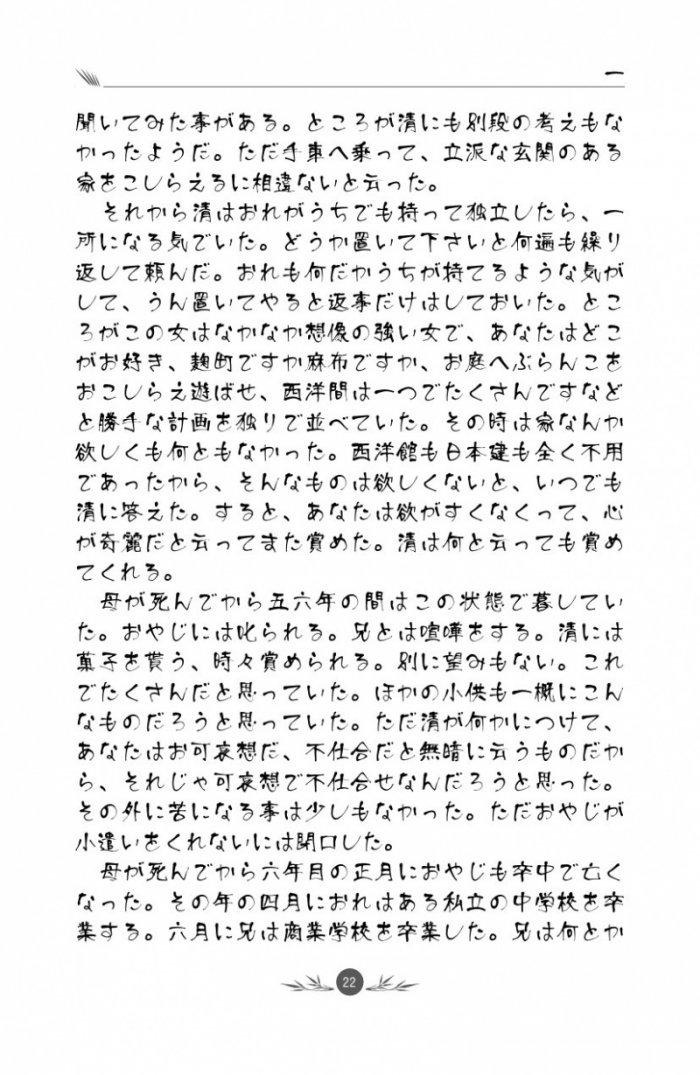 一
聞いてみた事がある。ところが清にも別段の考えもな
かったようだ。ただ手車へ乗って、立派な玄関のある
家をこしらえるに相違ないと云った。
それから清はおれがうちでも持って独立したら、一
所になる気でいた。どうか置いて下さいと何遍も繰り
返して頼んだ。おれも何だかうちが持てるような気が
して、うん置いてやると返事だけはしておいた。とこ
ろがこの女はなかなか想像の強い女で、あなたはどこ
がお好き、麹町ですか麻布ですか、お庭へぶらんこを
おこしらえ遊ばせ、西洋間は一つでたくさんですなど
と勝手な計画を独りで並べていた。その時は家なんか
欲しくも何ともなかった。西洋館も日本建も全く不用
であったから、そんなものは欲しくないと、いつでも
清に答えた。すると、あなたは欲がすくなくって、心
が奇麗だと云ってまた賞めた。清は何と云っても賞め
てくれる。
母が死んでから五六年の間はこの状態で暮してい
た。おやじには叱られる。兄とは喧嘩をする。清には
菓子を貰う、時々賞められる。別に望みもない。これ
でたくさんだと思っていた。ほかの小供も一概にこん
なものだろうと思っていた。ただ清が何かにつけて、
あなたはお可哀想だ、不仕合だと無暗に云うものだか
ら、それじゃ可哀想で不仕合せなんだろうと思った。
その外に苦になる事は少しもなかった。ただおやじが
小遣いをくれないには閉口した。
母が死んでから六年目の正月におやじも卒中で亡く
なった。その年の四月におれはある私立の中学校を卒
業する。六月に兄は商業学校を卒業した。兄は何とか
22